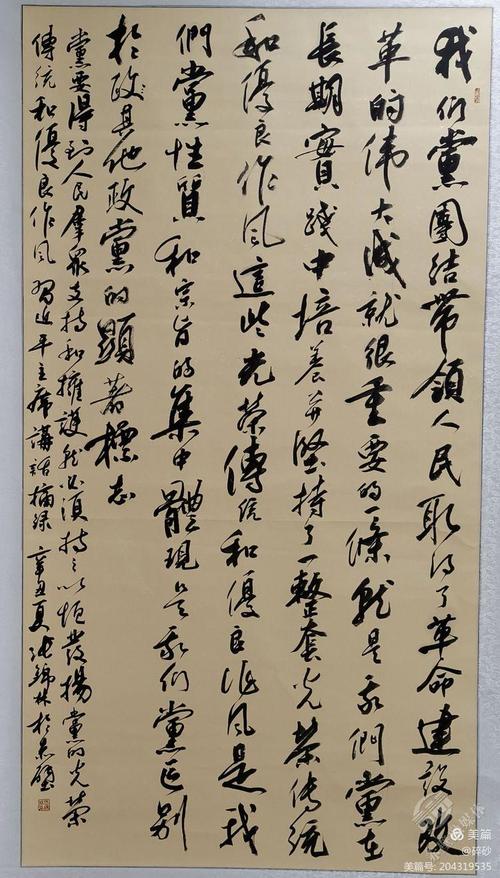 我们黨團结带領人民取得了革命建設改
革的伟大成就很重要的一條就是我們黨在
長期實践中培養并堅持了一整套光荣傳統
和優良作风這些光荣傳統和優良作风是我
們黨性質和宗旨的集中體現是我们黨区别
於政其他政黨的顯著標志
黨要得到人民羣眾支持和擁護就必須持之以恒發揚黨的光荣
傳統和優良作风 習近平主席講話摘録 辛丑夏 張錦林於
美篇
@碎砂
美篇号: 204319535